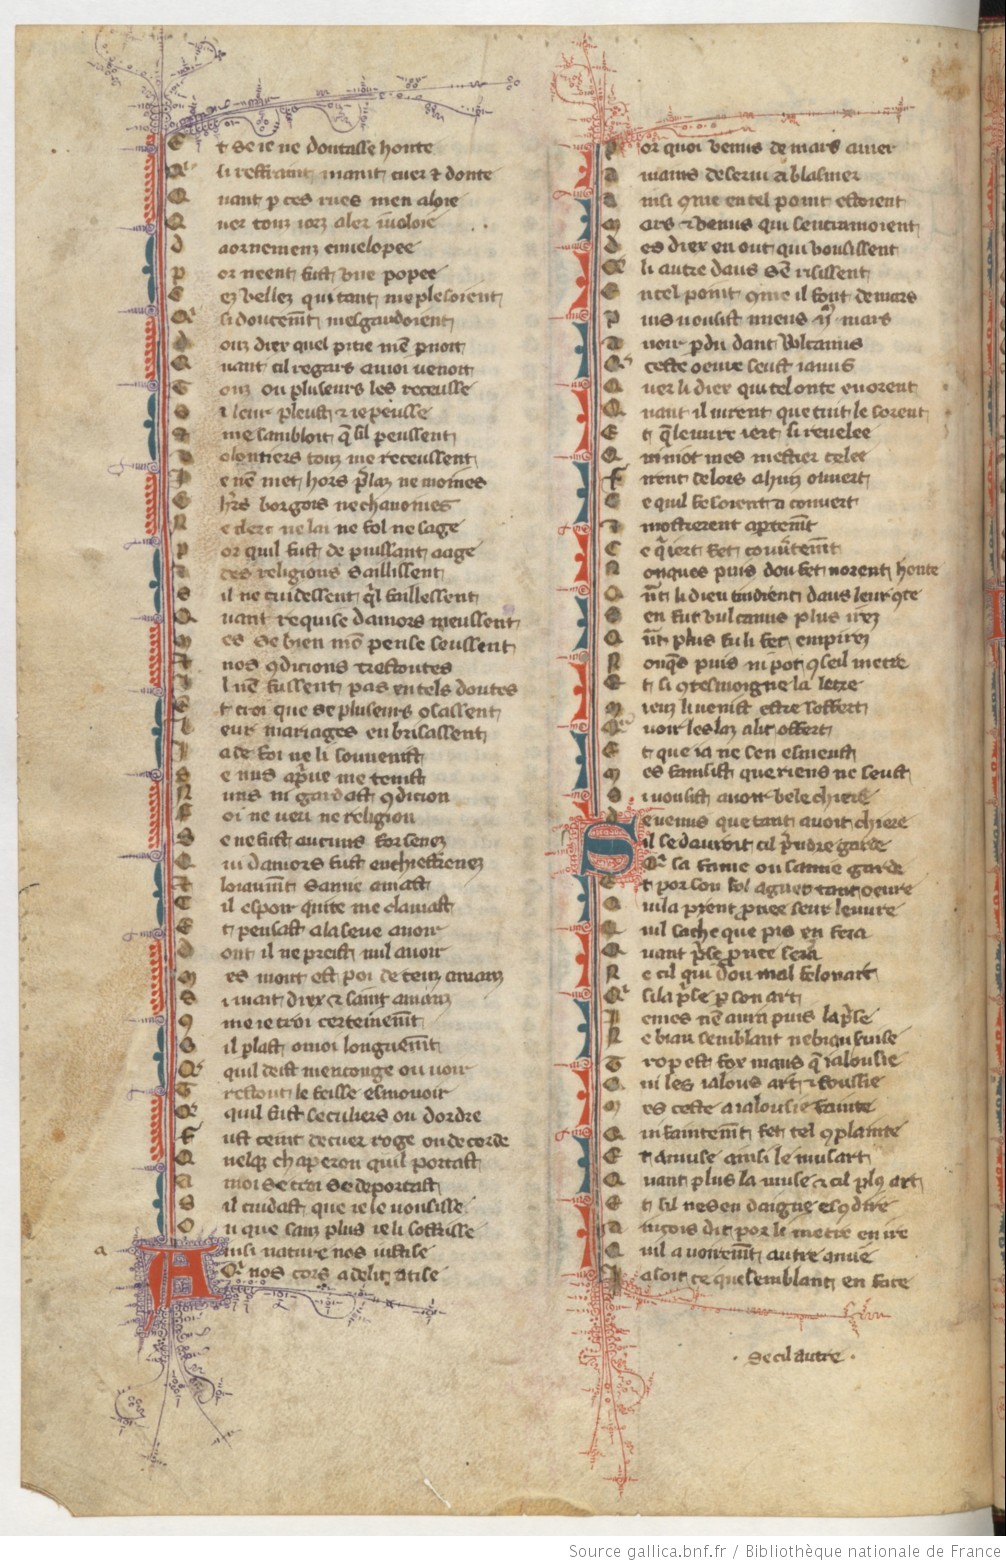 E t se ie ne doutasse honte
Q̛ li restraint maint cuer ⁊ donte
Q uant p̱ ces rues men aloie
Q uer touz iorz aler i uoloie
d aornemenz enuelopee
p or neent fust vne popee
C ez vellez qui tant me plesoient
Q̛ si doucem̄t mesgardoient
d ouz diex quel pitie men prenoit
Q uant cil regars a moi uenoit
T ouz ou pluseurs les receusse
s il leur pleust ⁊ ie peusse
a me sambloit q̄ sil peussent
v olentiers touz me receussent
I e nen met hors prelaz ne moines
C heualiers borgois ne chanoines
N e clerc ne lai ne fol ne sage
p or quil fust de puissant aage
a des religions saillissent
s il ne cuidessent quil faillissent
Q uant requise damors meussent
m es se bien mon pense seussent
A nos ꝯdicions trestoutes
I l nen fussent pas en tels doutes
E t croi que se pluseurs osassent
L eur mariages en brisassent
I a de foi ne li souuenist
S e nus a priue me tenist
N uns ni gardast ꝯdicion
F oi ne ueu ne religion
S e ne fust aucuns forsenez
Q ui damors fust enchifrenez
E loiaum̄t samie amast
C il espoir quite me clamast
E t pensast a la seue auoir
D ont il ne preist nul auoir
m es mout est poi de teus amanz
S i mait diex ⁊ saint amanz
9 me ie croi certeinem̄t
S il plast o moi longuem̄t
Q̛ quil deist menconge ou uoir
T restout le feisse esmouoir
Q̛ quil fust seculiers ou dordre
F ust ceint de cuer roge ou de corde
Q uelq̄ chaperon quil portast
A moi se croi se deportast
S il cuidast que ie le uousisse
O u que sanz plus ie li soffrisse
A insi nature nos iustise
Q̛ nos cors a delit atise
P or quoi venus de mars amer
A mains deserui a blasmer
A insi ꝯme en tel point estoient
m ars ⁊ venus qui sentramoient
d es diex en out qui uousissent
Q̛ li autre daus sen risissent
E n cel point ꝯme il font de mars
P uis uousist mieus .ij. mars
A uoir p̱du dant vulcanus
Q̛ ceste oeure seust ia nus
Q uer li dui qui tel onte en orent
Q uant il uirent que tuit le sorent
E t q̄ leuure iert si reuelee
A ni mot mes mestier celee
F irent delors a huis ouuert
C e quil fesoient a couuert
A mostrerent ap̱tem̄t
C e q̄ iert fet couuertem̄t
N onques puis dou fet norent honte
Q ūt li dieu tindrent daus leur ꝯte
S en fut vulcanus plus irez
Q ūt plus fu li fet empirez
N onq̄s puis ni pot ꝯseil metre
E t si ꝯ tesmoigne la letre
m ieuz li uenist estre soffert
Q̛ auoir les laz au lit offert
E t que ia ne sen esmeust
m es fainsist que riens ne seust
S i uousist auoir bele chiere
d e venus que tant auoit chiere
S il se dauroit cil prendre garde
Q̛ sa fame ou samie garde
E t por son fol aguet tant oeure
Q uil a prent prouee seur leuure
Q uil sache que pis en fera
Q uant prise prouee sera
N e cil qui dou mal felon art
Q̛ si la prise p̱ son art
I emes nen aura puis la prise
N e biau semblant ne bon seruise
T rop est fox maus q̄ ialousie
Q ui les ialous art ⁊ soussie
m es ceste a ialousie fainte
Q ui faintem̄t fet tel ꝯplainte
E t amuse ainsi le musart
Q uant plus la muse ⁊ cil plꝯ art
E t sil ne sen daigne escꝯdire
A incois dit por li metre en ire
Q uil a uoirem̄t autre amie
I a soit ce que semblant en face
· Se cil autre ·
Source gallica.bnf.fr / Bibliothèque nationale de France